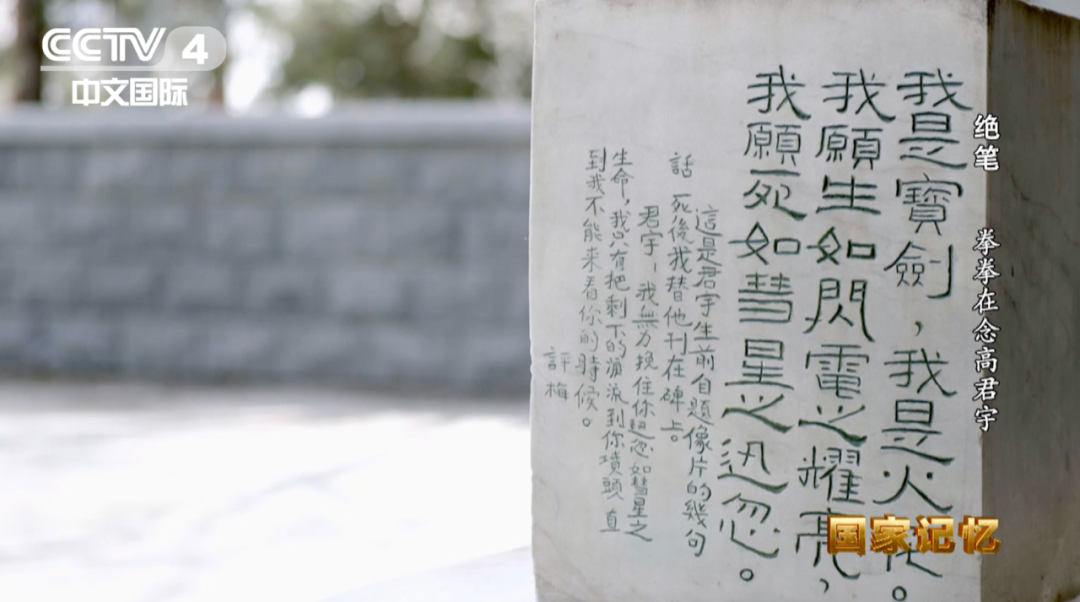 CCTV 4
中文国际
绝笔 拳拳在念高君宇
我是寶劍，我是火。
我願生如閃電之耀亮，
我願死如彗星之迅忽。
這是君宇生前自題像片的幾句
話 死後我替他刊在碑上。
君宇！我無力挽住你迅忽如彗星之
生命，我只有把剩下的淚流到你墳頭 直
到我不能來看你的時候。
評梅
国家记忆